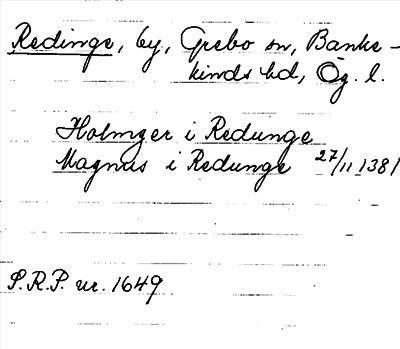 Redinge, by, Grebo sn, Banke-
kinds hd, Ög. l.
Holmger i Redunge
Magnus i Redunge 27/11 1381
S.R.P. nr. 1649